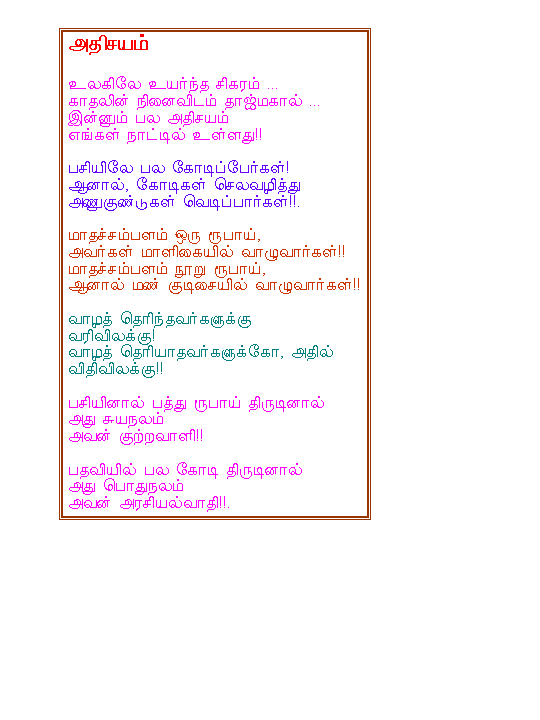 அதிசயம்
உலகிலே உயர்ந்த சிகரம் ...
காதலின் நினைவிடம் தாஜ்மகால் ...
இன்னும் பல அதிசயம்
எங்கள் நாட்டில் உள்ளது!!
பசியிலே பல கோடிப்பேர்கள்!
ஆனால், கோடிகள் செலவழித்து
அணுகுண்டுகள் வெடிப்பார்கள்!!.
மாதச்சம்பளம் ஒரு ரூபாய்,
அவர்கள் மாளிகையில் வாழுவார்கள்!!
மாதச்சம்பளம் நூறு ரூபாய்,
ஆனால் மண் குடிசையில் வாழுவார்கள்!!
வாழத் தெரிந்தவர்களுக்கு
வரிவிலக்கு!
வாழத் தெரியாதவர்களுக்கோ, அதில்
விதிவிலக்கு!!
பசியினால் பத்து ரூபாய் திருடினால்
அது சுயநலம்
அவன் குற்றவாளி!!
பதவியில் பல கோடி திருடினால்
அது பொதுநலம்
அவன் அரசியல்வாதி!!.